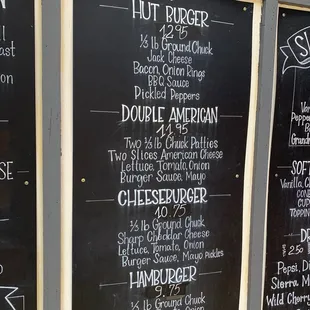 HUT BURGER
12.95
⅓ lb Ground Chuck
Jack Cheese
Bacon, Onion Rings
BBQ Sauce
Pickled Peppers
DOUBLE AMERICAN
11.95
Two ⅓ lb Chuck Patties
Two Slices American Cheese
Lettuce, Tomato, Onion
Burger Sauce, Mayo
CHEESEBURGER
10.75
⅓ lb Ground Chuck
Sharp Cheddar Cheese
Lettuce, Tomato, Onion
Burger Sauce, Mayo Pickles
HAMBURGER
9.75
⅓ lb Ground Chuck
Lettuce, Tomato, Onion
SOFT
Vanilla, C
CONE
CUP
TOPPING
DR
2.50
Pepsi, Di
Sierra M
Wild Cherry